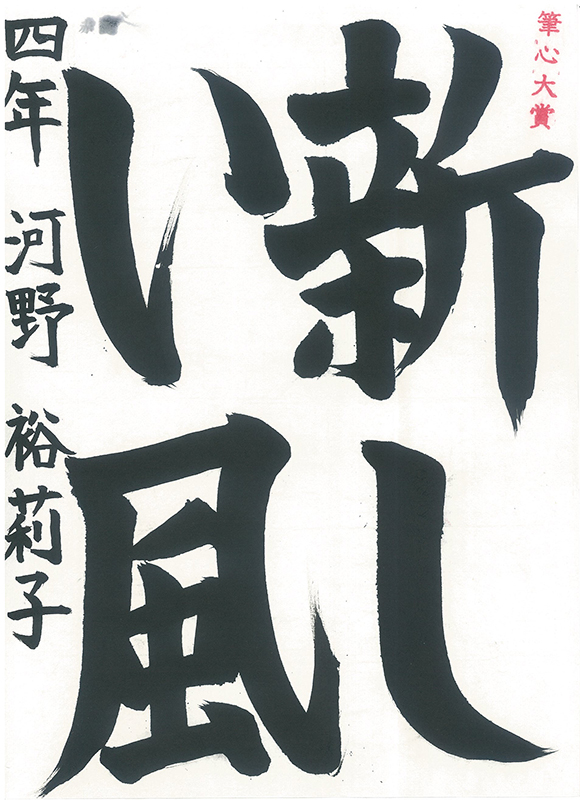 筆心大賞
新し
い風
四年 河野 裕莉子